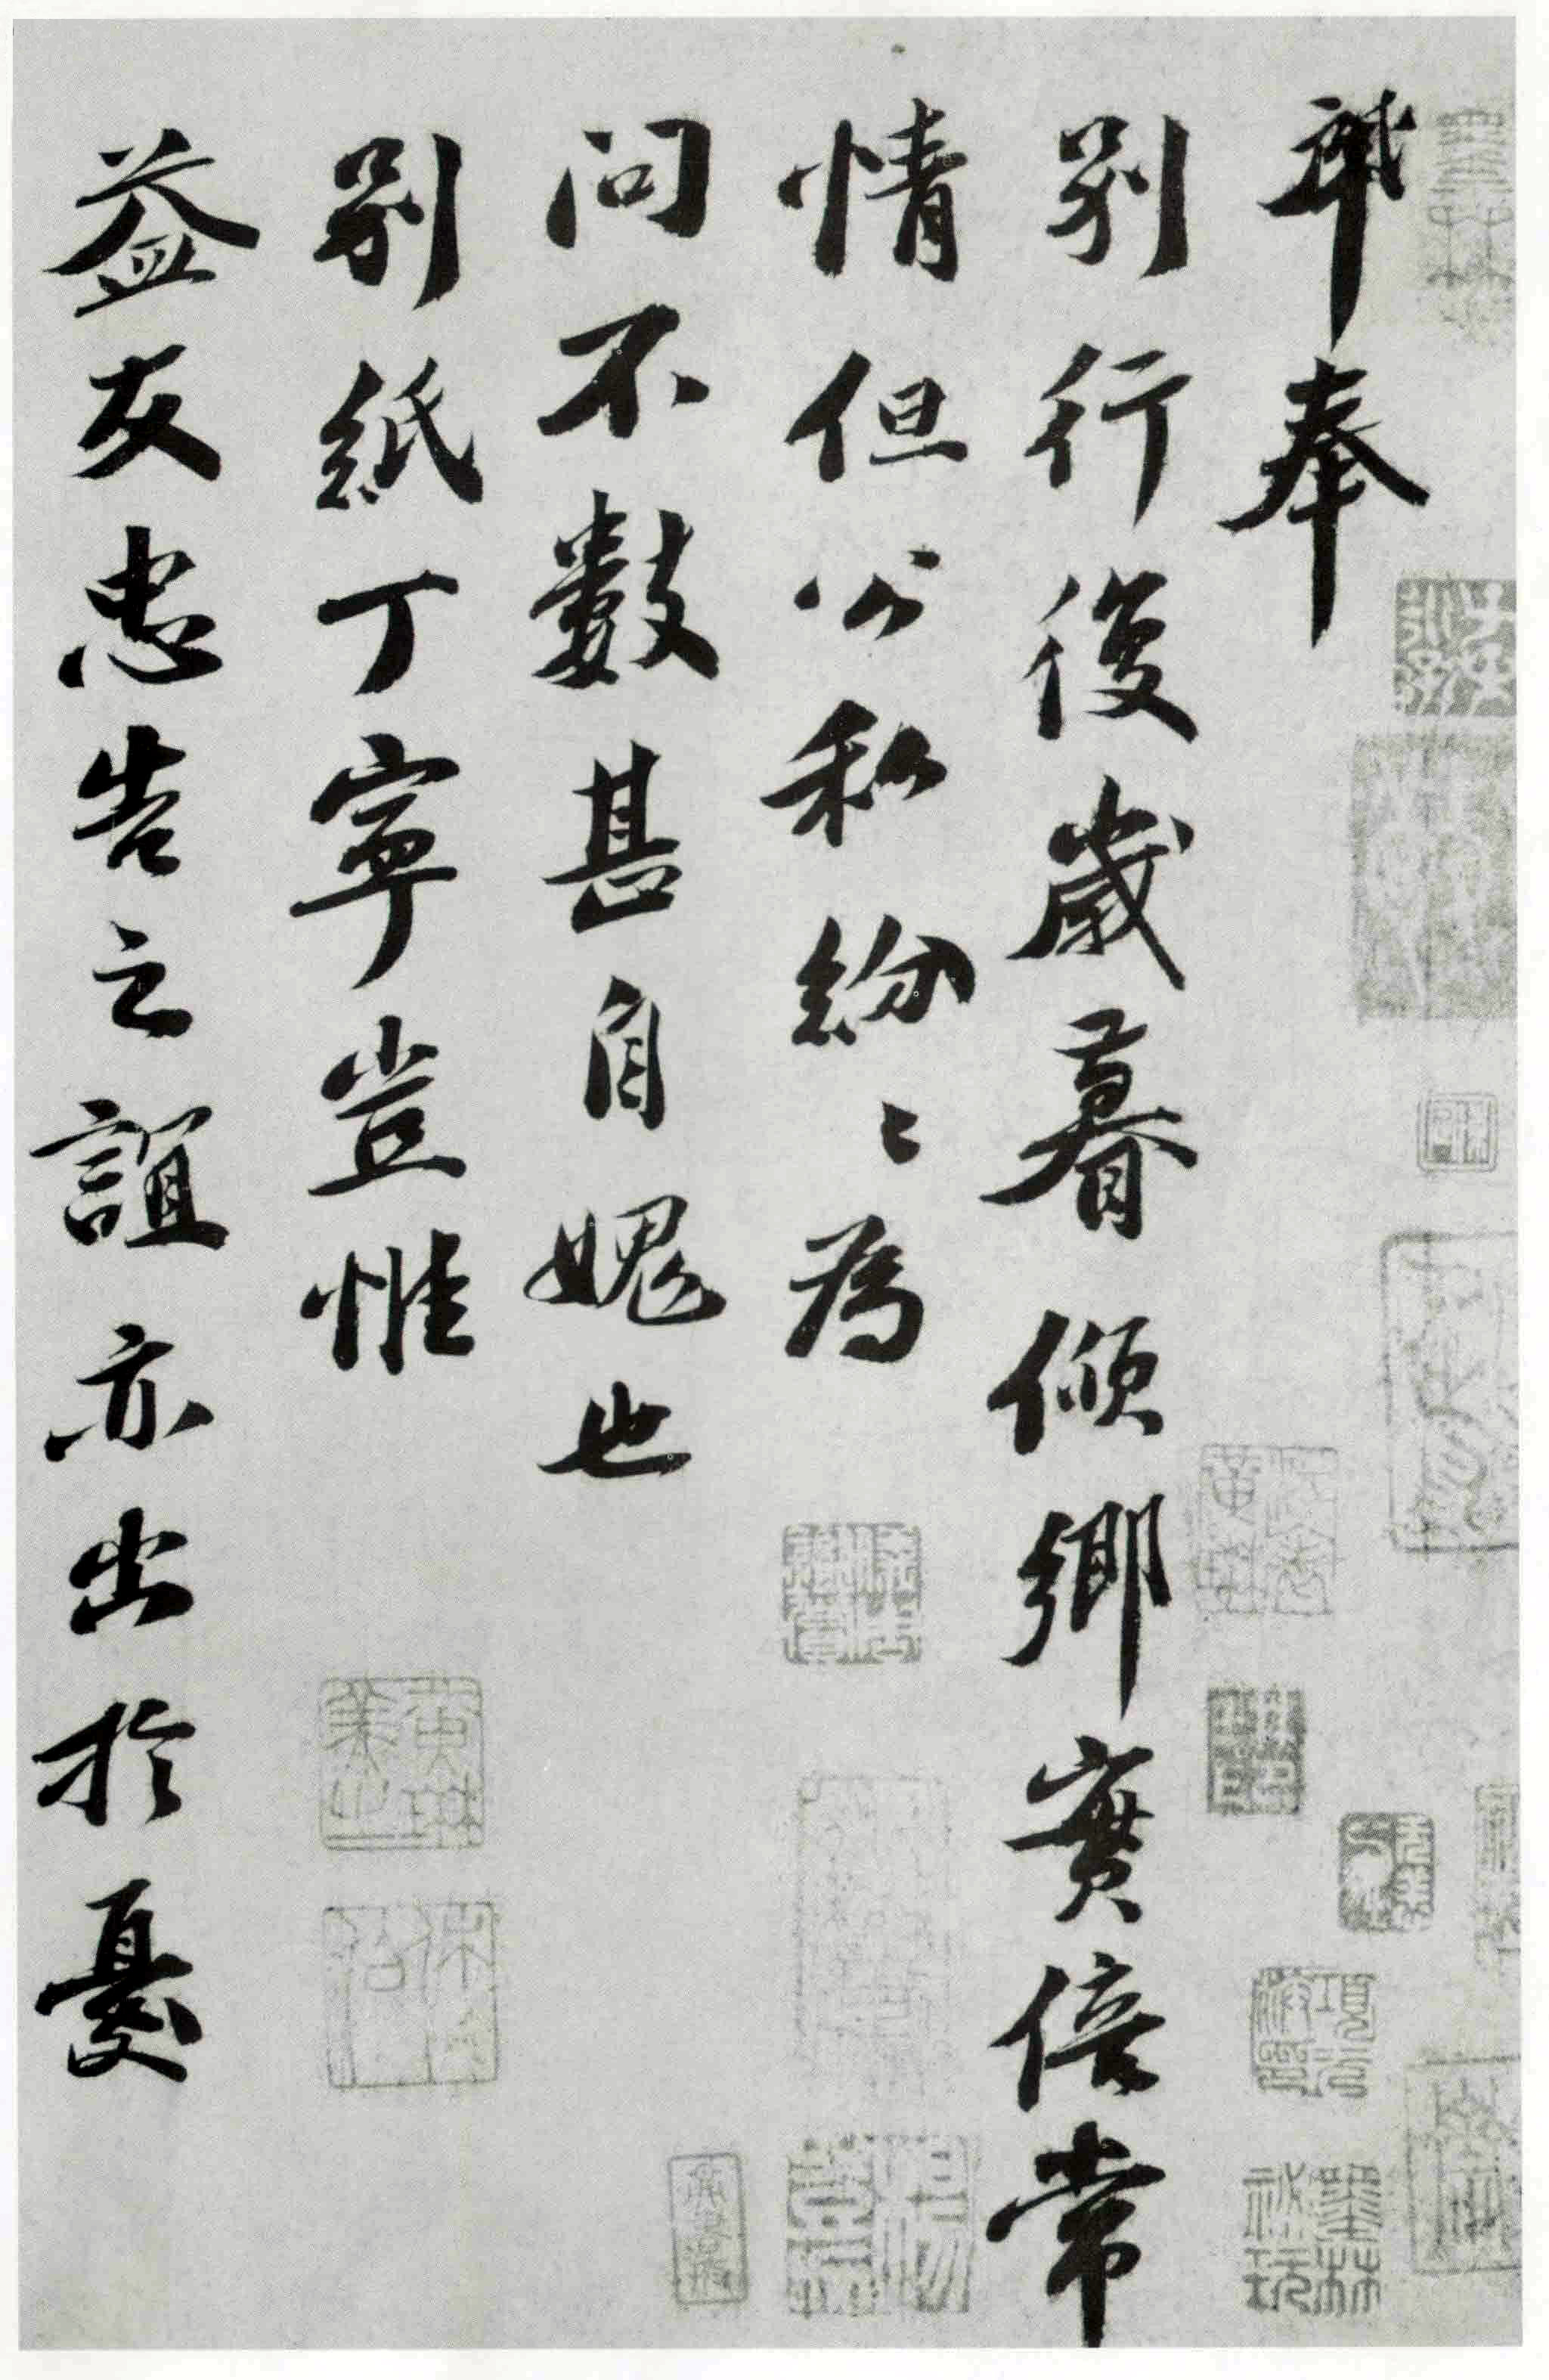 奉
別行後歲暮傾鄉實倍常
情但以公私紛〻為
問不數甚自媿也
別紙丁寧豈惟
益友忠告之誼亦出於憂